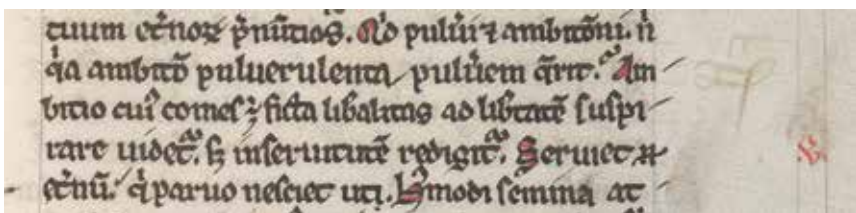 tuum et̄noꝝ p̄nūtios. Ad pulūi ⁊ ambitōni. n̄
q̇a ambitō puluerulenta pulūem q̄rit. Am
bitio cui᷒ comes ē ficta lib̄alitas ad lib̄tatē suspi
rare uidet᷑. sꝫ in seruitutē redigit᷑. Seruiet
et̄nū. q̇ paruo nesciet uti. Hꝰmodi sēmina at